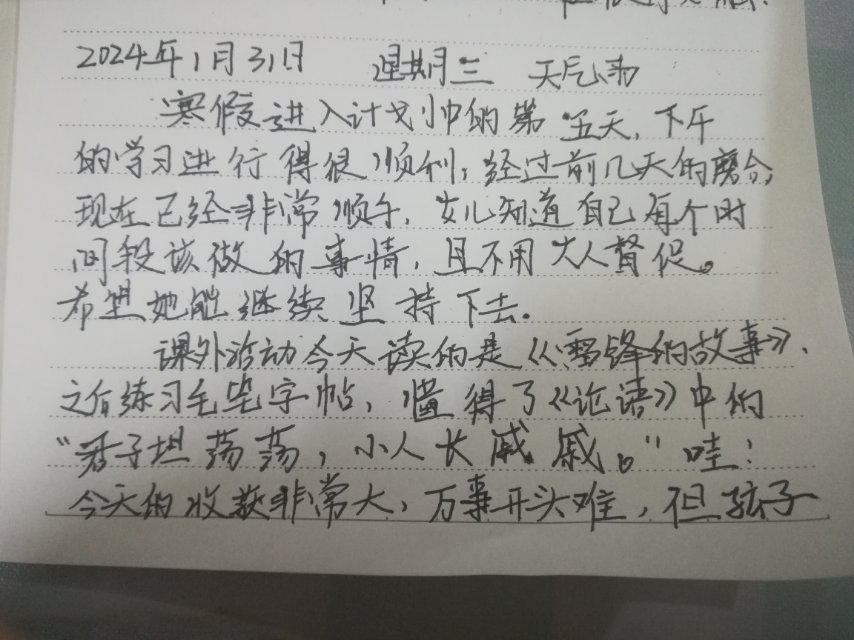 2024年1月31日 星期三 天气雨
寒假进入计划中的第五天,下午
的学习进行得很顺利,经过前几天的磨合,
现在已经非常顺手,女儿知道自己每个时
间段该做的事情,且不用大人督促。
希望她能继续坚持下去。
课外活动今天读的是《雷锋的故事》,
之后练习毛笔字帖,懂得了《论语》中的
“君子坦荡荡,小人长戚戚。”哇!
今天的收获非常大,万事开头难,但孩子